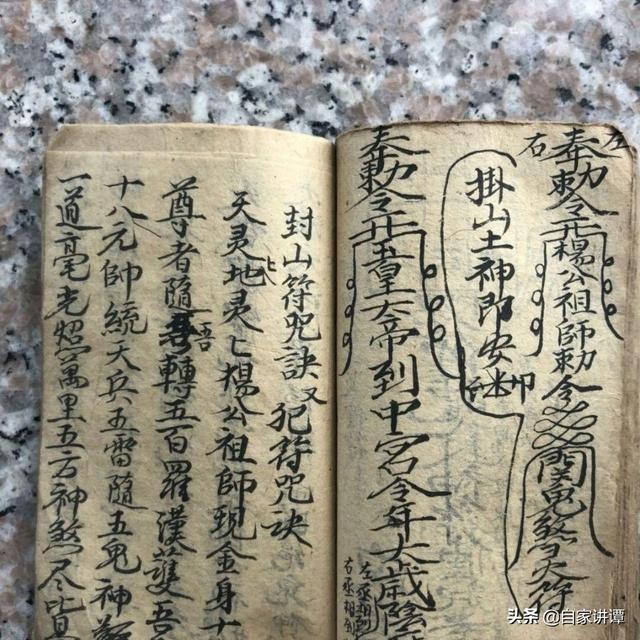 左
右
奉勅令正楊公祖師勅令 雷鬼煞天符
掛山土神即安
奉勅令正玉皇大帝到中宮令年太歲陰
左丞相到
右丞相到
封山符咒訣又犯符咒訣
天灵地灵匕楊公祖師現金身十
尊者隨吾轉五百羅漢護吾
十八元帥統天兵五雷隨五鬼神
一道毫光照萬里五方神煞尽皆
头条 @自家讲谭